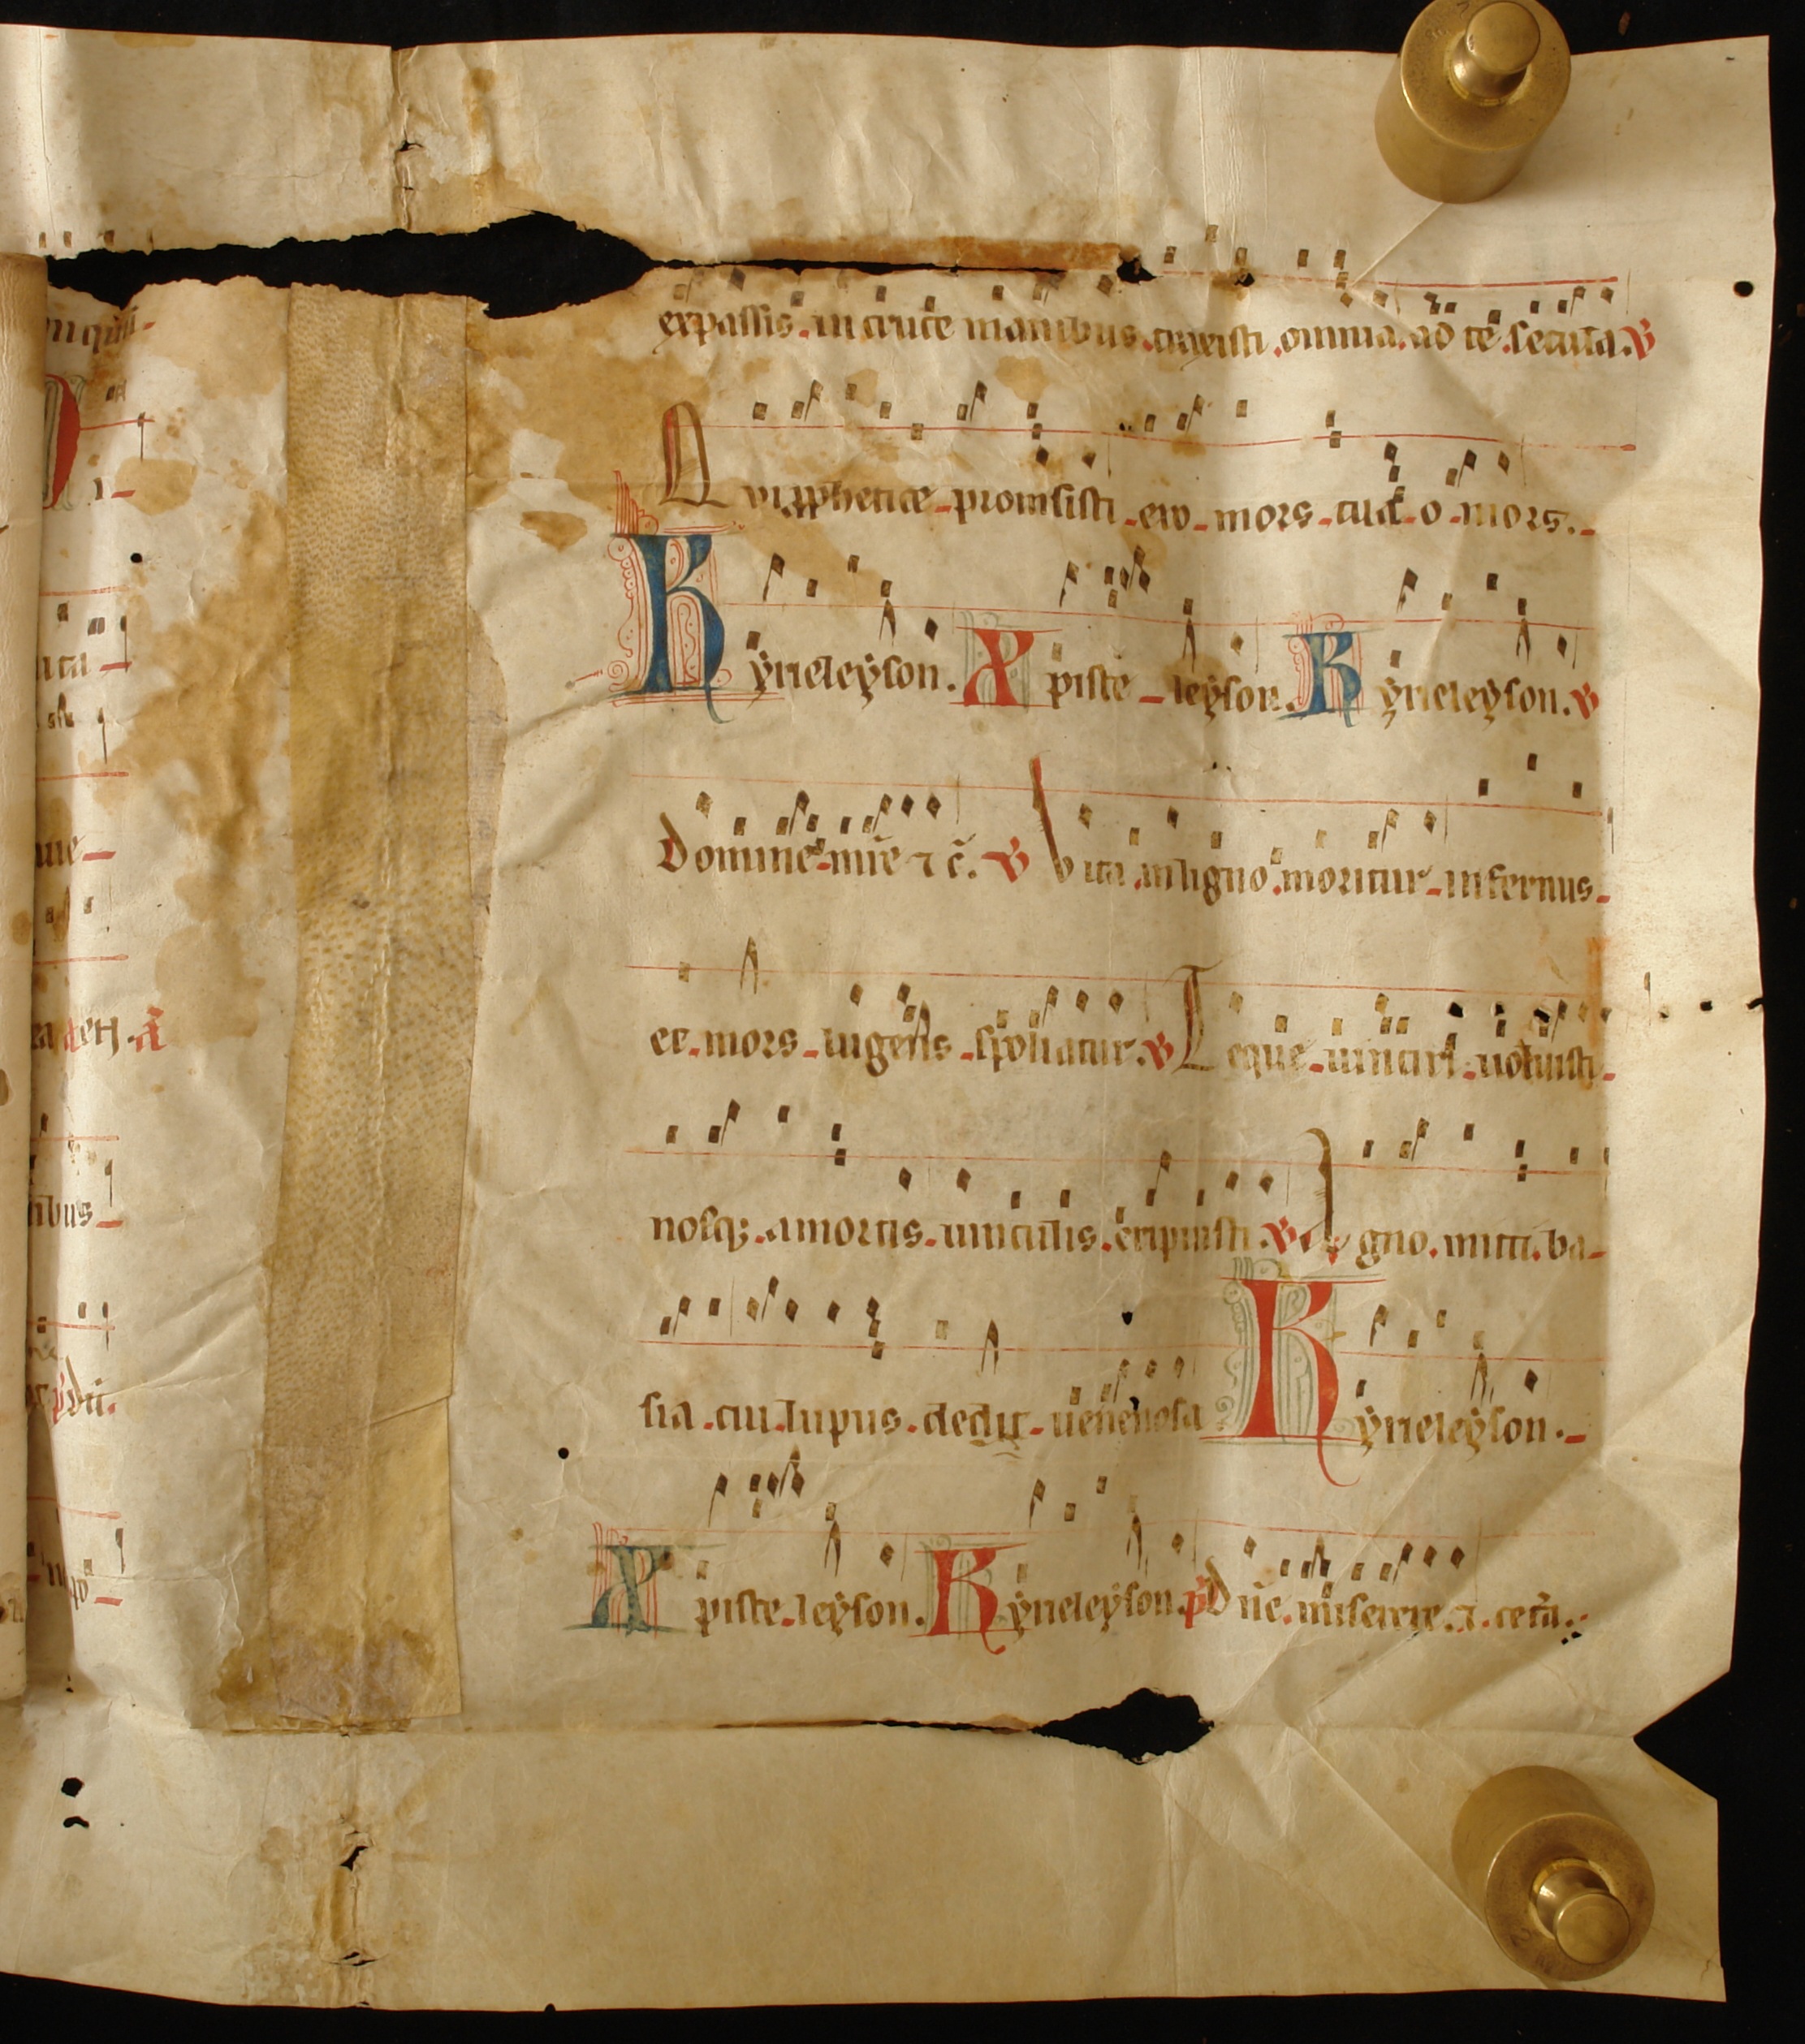 expassis in cruce manibus traxisti omnia ad te secula. V
Qui prophetice promisisti ero mors tua o mors.
Kyrieleyson. Xpiste leyson. Kyrieleyson. V
Domine mīe ⁊ c̄. V Vita in ligno moritur infernus
ex mors lugens spoliatur. V Teque uinciri uoluisti
nosq; a mortis uinculis eripuisti V Agno miti ba
sia cui lupus dedit uenenosa Kyrieleyson.
Xpiste leyson. Kyrieleyson. p̄ Dn̄e. miserere. ⁊ cet̄a.